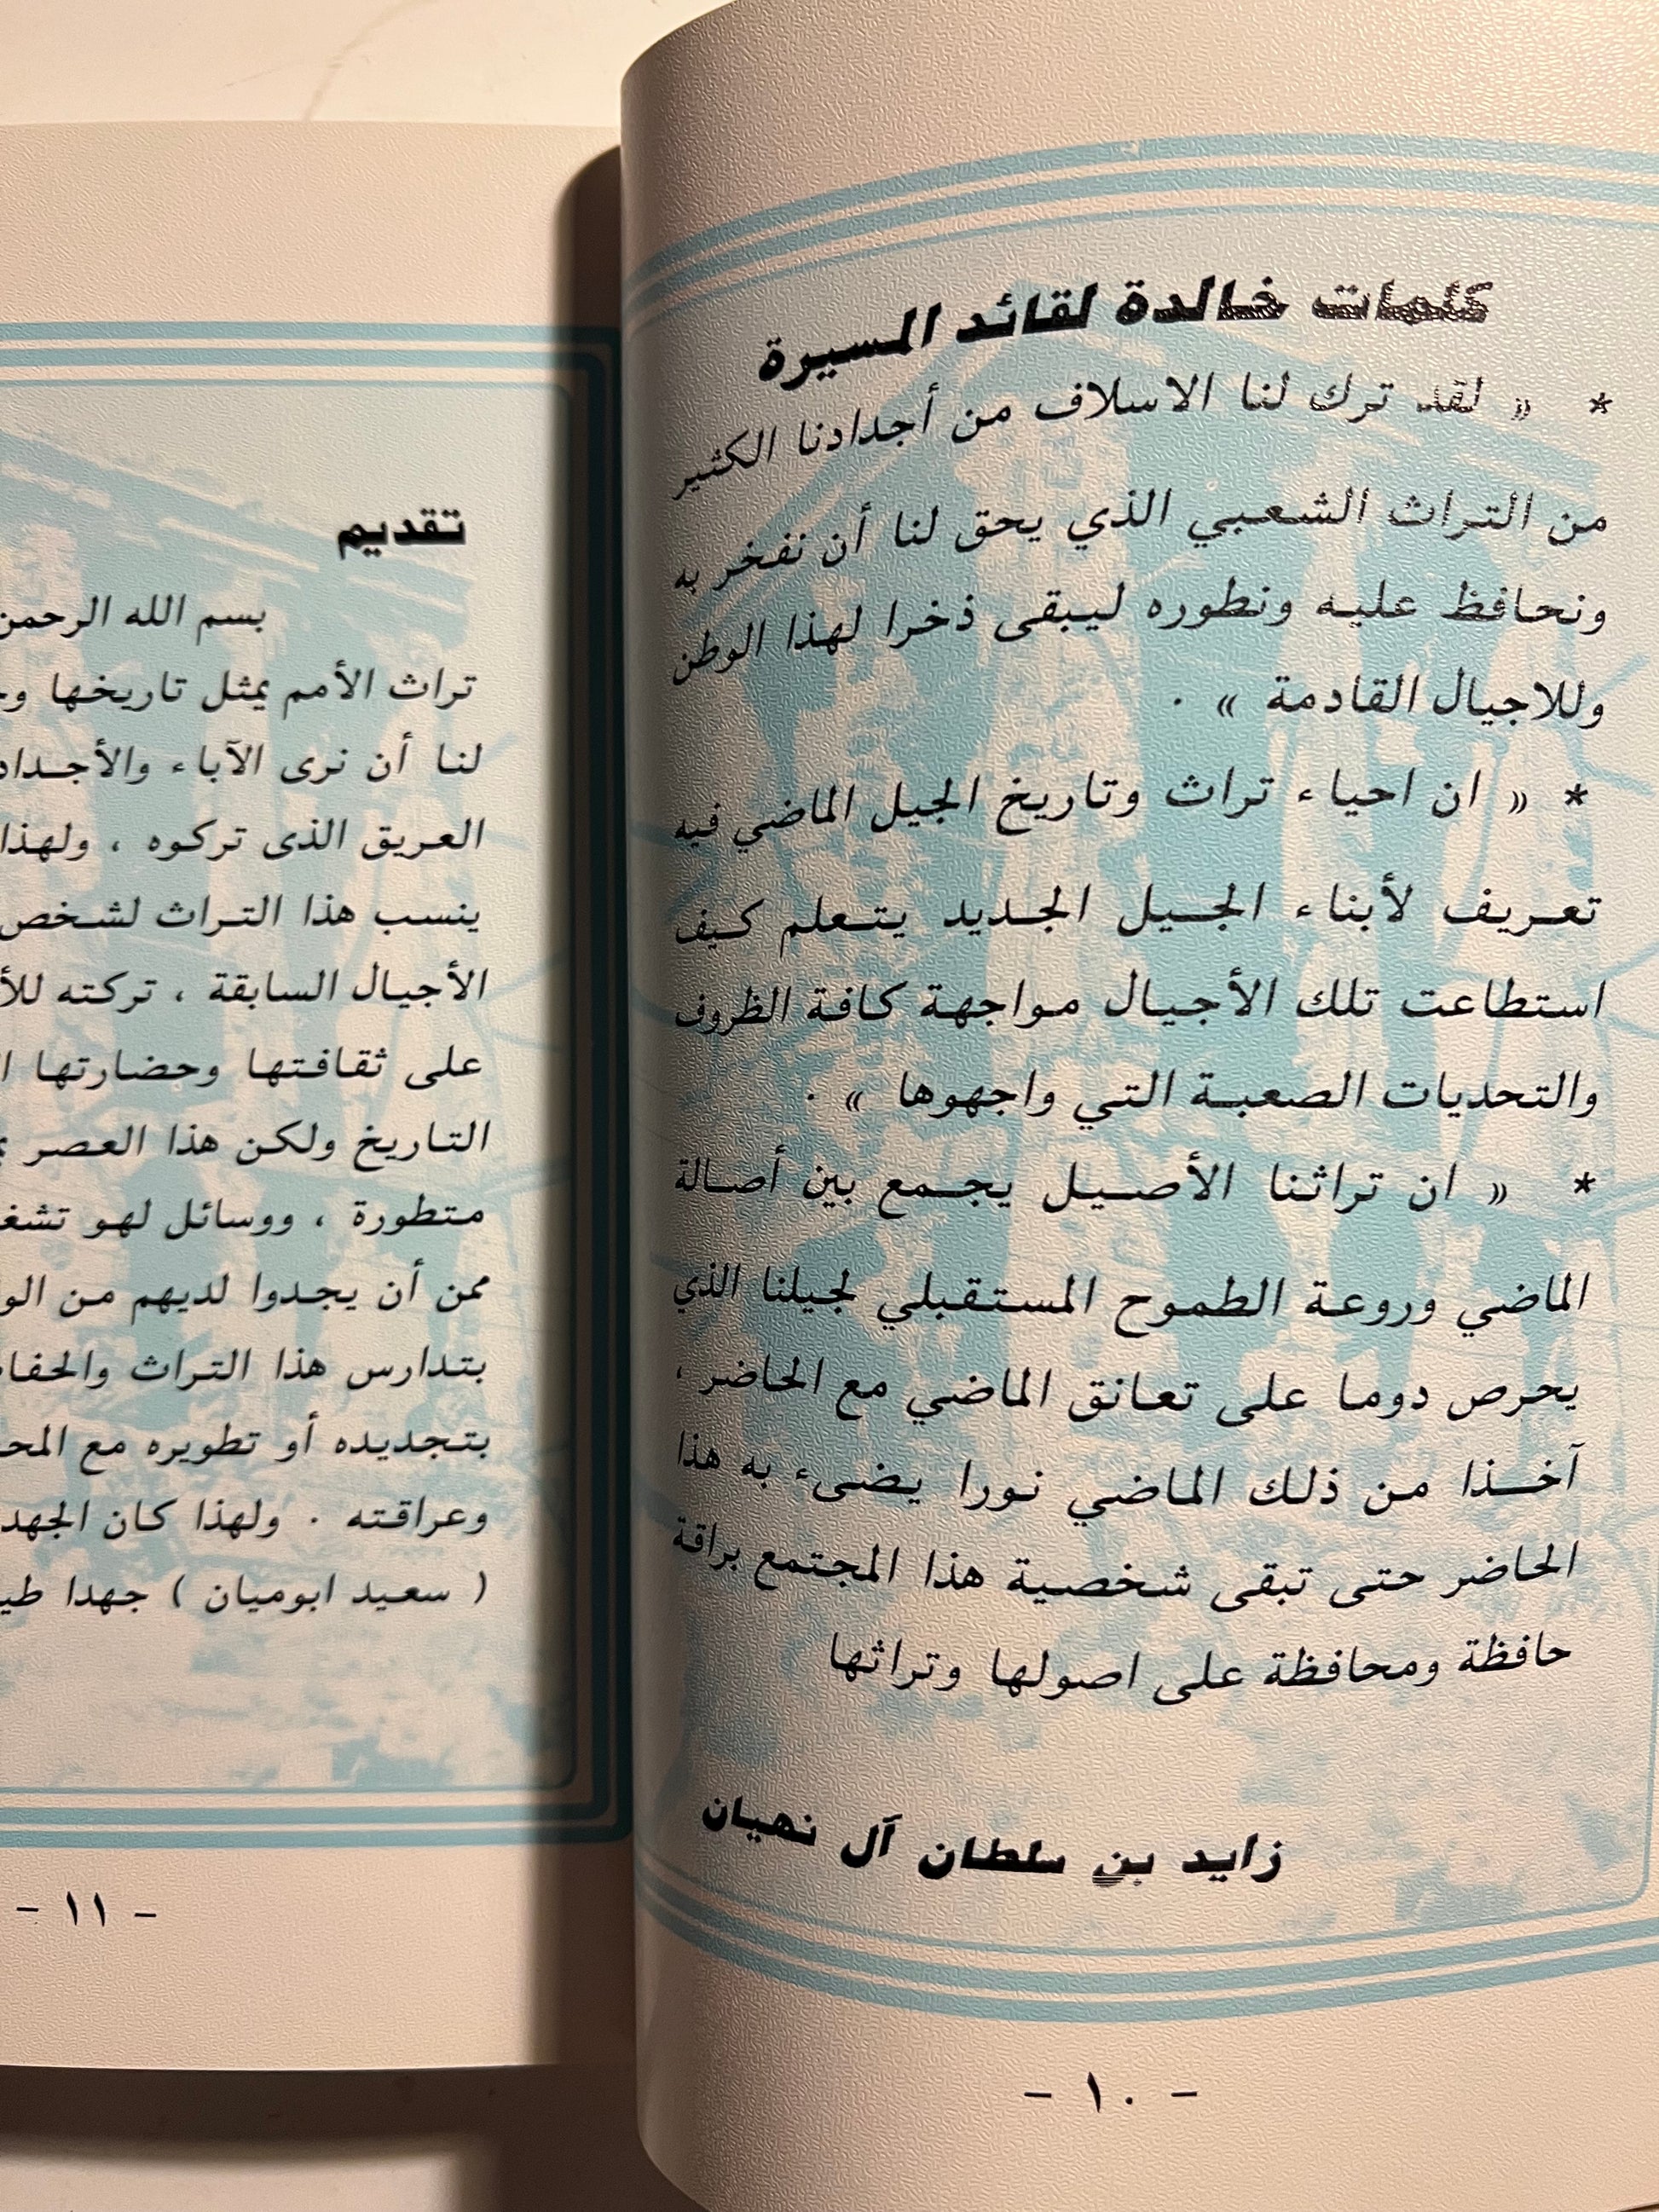 كلمات خالدة لقائد المسيرة
* « لقد ترك لنا الاسلاف من أجدادنا الكثير
من التراث الشعبي الذي يحق لنا أن نفخر به
ونحافظ عليه ونطوره ليبقى ذخرا لهذا الوطن
وللاجيال القادمة » .
* « ان احياء تراث وتاريخ الجيل الماضي فيه
تعريف لأبناء الجيل الجديد يتعلم كيف
استطاعت تلك الأجيال مواجهة كافة الظروف
والتحديات الصعبة التي واجهوها » .
* « ان تراثنا الأصيل يجمع بين أصالة
الماضي وروعة الطموح المستقبلي لجيلنا الذي
يحرص دوما على تعانق الماضي مع الحاضر ،
آخذا من ذلك الماضي نورا يضىء به هذا
الحاضر حتى تبقى شخصية هذا المجتمع براقة
حافظة ومحافظة على اصولها وتراثها
زايد بن سلطان آل نهيان
- ١٠ -
تقديم
بسم الله الرحمن
تراث الأمم يمثل تاريخها
لنا أن نرى الآباء
العريق الذى تركوه ، ولهذا
ينسب هذا التراث لشخص
الأجيال السابقة ، تركته
على ثقافتها وحضارتها
التاريخ ولكن هذا العصر
متطورة ، ووسائل لهو
ممن أن يجدوا لديهم من
بتدارس هذا التراث
بتجديده أو تطويره مع
وعراقته . ولهذا كان الجهد
( سعيد ابوميان ) جهدا
- ١١ -